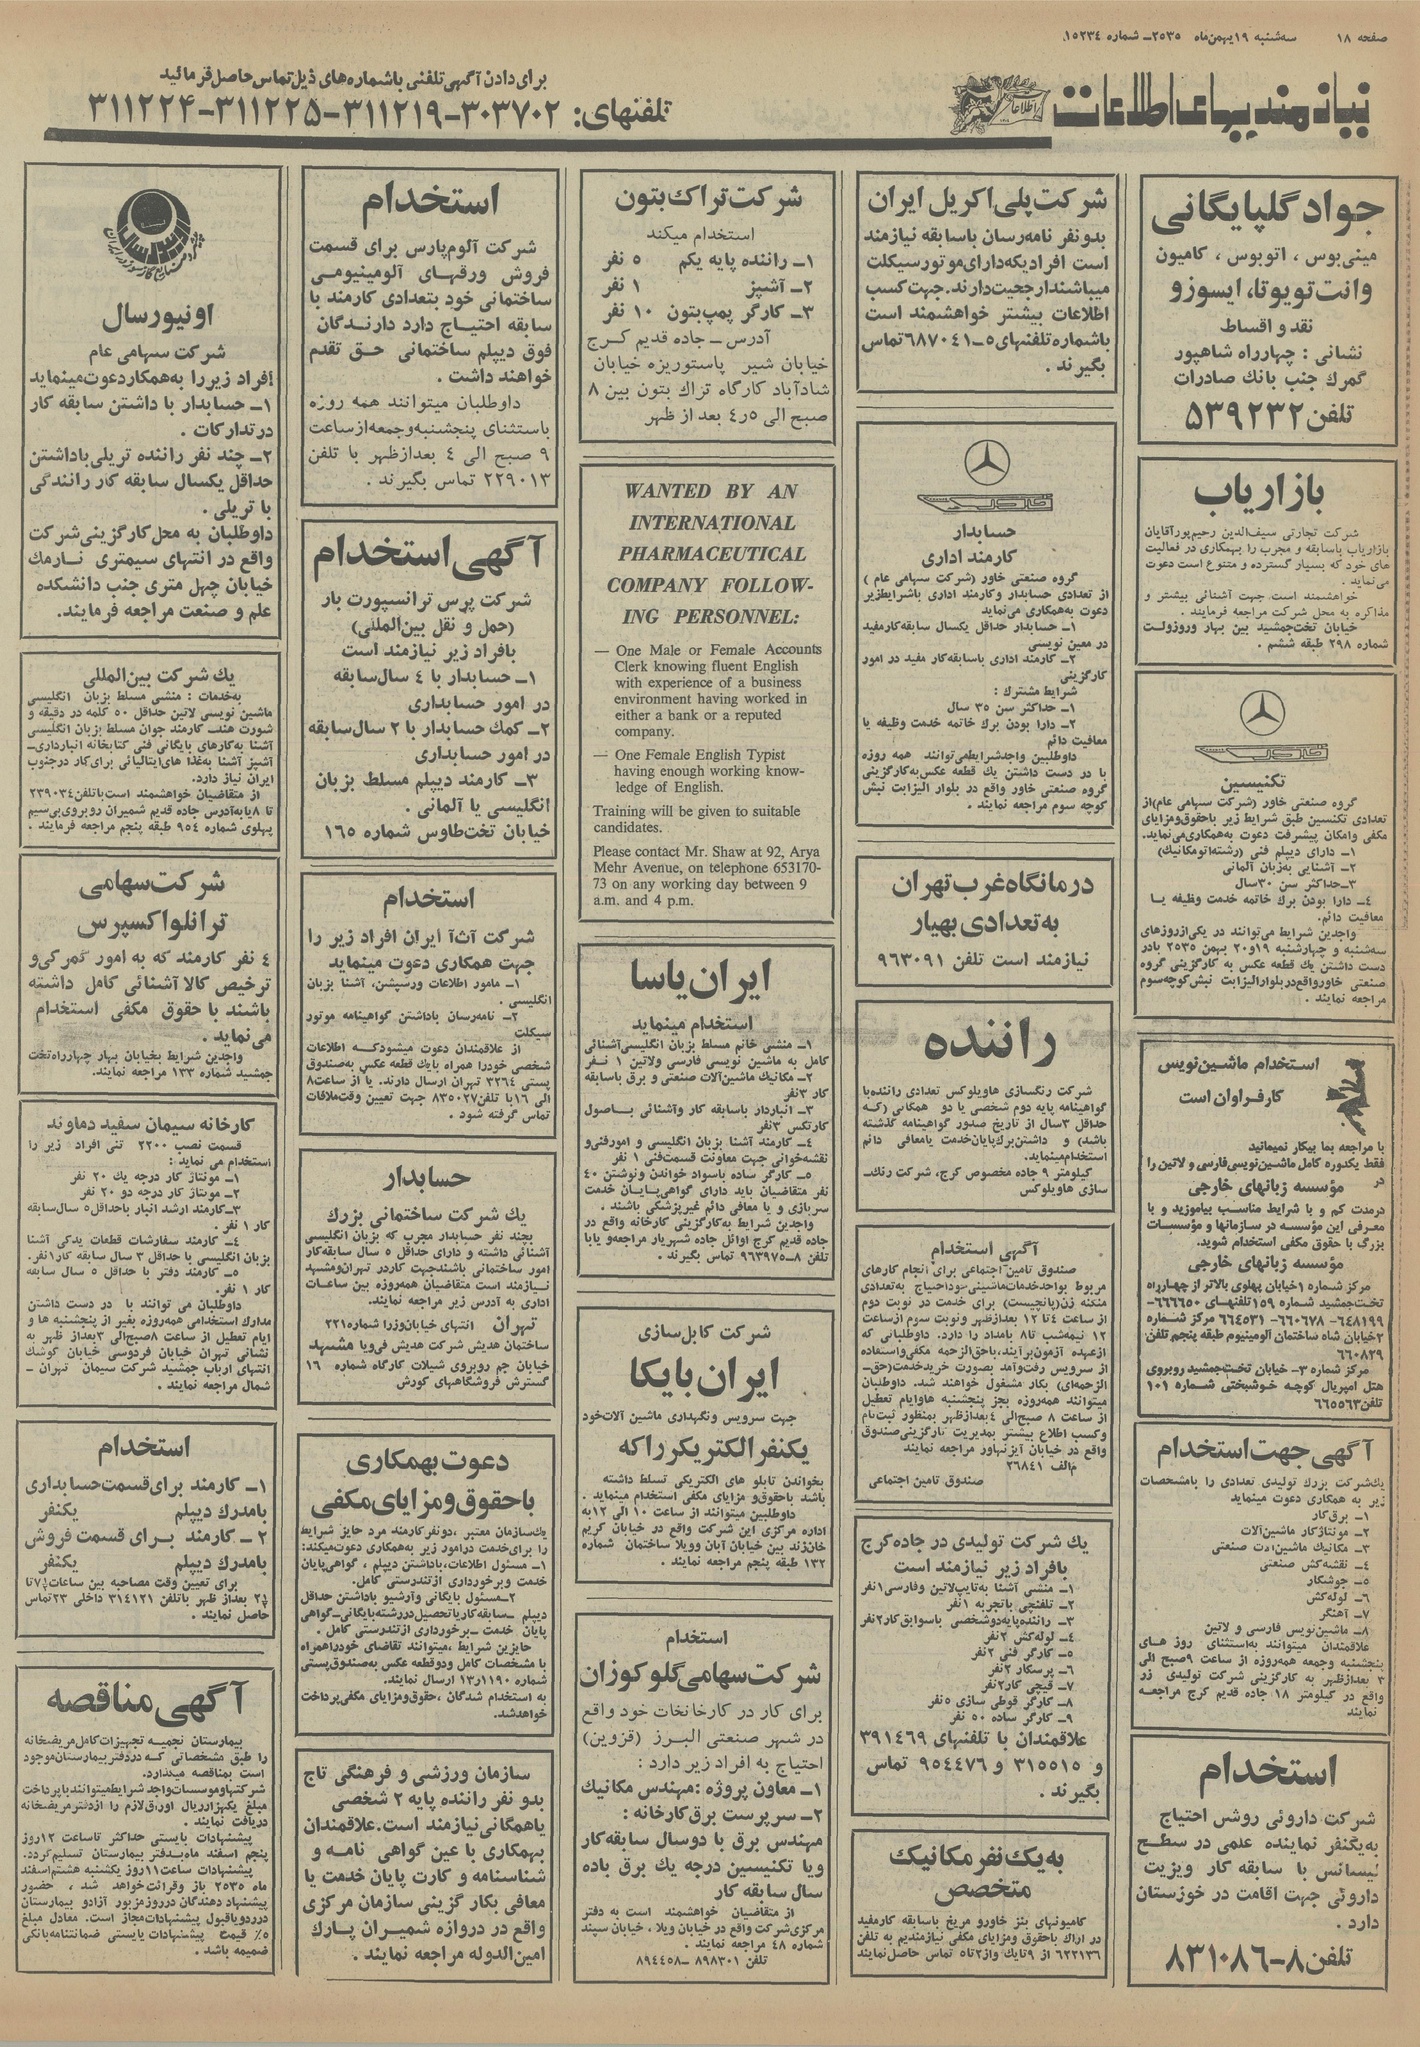 صفحه ۱۸
سه‌شنبه ۱۹ بهمن‌ماه ۲۵۳۵ـ شماره ۱۵۲۳۴
نیازمندیهای اطلاعات
برای دادن آگهی تلفنی باشماره‌های ذیل تماس حاصل فرمائید
تلفنهای: ۳۰۳۷۰۲-۳۱۱۲۱۹-۳۱۱۲۲۵-۳۱۱۲۲۴
جواد گلپایگانی
مینی‌بوس ، اتوبوس ، کامیون
وانت تویوتا، ایسوزو
نقد و اقساط
نشانی : چهارراه شاهپور
گمرک جنب بانک صادرات
تلفن ۵۳۹۲۳۲
بازاریاب
شرکت تجارتی سیف‌الدین رحیم‌پور آقایان
بازاریاب باسابقه و مجرب را بهمکاری در فعالیت
های خود که بسیار گسترده و متنوع است دعوت
می‌نماید .
خواهشمند است جهت آشنائی بیشتر و
مذاکره به محل شرکت مراجعه فرمایند .
خیابان تخت‌جمشید بین بهار وروزولت
شماره ۲۹۸ طبقه ششم .
خاور
تکنیسین
گروه صنعتی خاور (شرکت سهامی عام) از
تعدادی تکنسین طبق شرایط زیر باحقوق‌ومزایای
مکفی وامکان پیشرفت دعوت به‌همکاری‌می‌نماید.
۱ـ دارای دیپلم فنی (رشته‌اتومکانیک)
۲ـ آشنایی به‌زبان آلمانی
۳ـ حداکثر سن ۳۰ سال
۴ـ دارا بودن برک خاتمه خدمت وظیفه یا
معافیت دائم.
واجدین شرایط می‌توانند در یکی‌ازروزهای
سه‌شنبه و چهارشنبه ۱۹و۲۰ بهمن ۲۵۳۵ بادر
دست داشتن یک قطعه عکس به کارگزینی گروه
صنعتی خاورواقع‌دربلوارالیزابت نبش‌کوچه‌سوم
مراجعه نمایند .
استخدام ماشین‌نویس
کار فراوان است
با مراجعه بما بیکار نمیمانید
فقط یکدوره کامل ماشین‌نویسی‌فارسی و لاتین را
در
مؤسسه زبانهای خارجی
درمدت کم و با شرایط مناسب بیاموزید و با
معرفی این مؤسسه در سازمانها و مؤسسات
بزرگ با حقوق مکفی استخدام شوید.
مؤسسه زبانهای خارجی
مرکز شماره ۱خیابان پهلوی بالاتر از چهارراه
تخت‌جمشید شماره ۱۵۹ تلفنهای ۶۶۶۶۵۰-
۶۴۸۱۹۹-۶۶۰۶۷۸- ۶۶۴۵۳۱ مرکز شماره
۲خیابان شاه ساختمان آلومینیوم طبقه پنجم تلفن
۶۶۰۸۲۹
مرکز شماره ۳ـ خیابان تخت‌جمشید روبروی
هتل امپریال کوچه خوشبختی شماره ۱۰۱
تلفن۶۶۵۵۶۳
آگهی جهت استخدام
یک‌شرکت بزرگ تولیدی تعدادی را بامشخصات
زیر به همکاری دعوت مینماید
۱ـ برق‌کار
۲ـ مونتاژکار ماشین‌آلات
۳ـ مکانیک ماشین‌آلات صنعتی
۴ـ نقشه‌کش صنعتی
۵ـ جوشکار
۶ـ لوله‌کش
۷ـ آهنگر
۸ـ ماشین‌نویس فارسی و لاتین
علاقمندان میتوانند به‌استثنای روز های
پنجشنبه وجمعه همه‌روزه از ساعت ۹صبح الی
۳ بعدازظهر به کارگزینی شرکت تولیدی زر
واقع در کیلومتر ۱۸ جاده قدیم کرج مراجعه
نمایند
استخدام
شرکت داروئی روشس احتیاج
به‌یکنفر نماینده علمی در سطح
لیسانس با سابقه کار ویزیت
داروئی جهت اقامت در خوزستان
دارد .
تلفن ۸-۸۳۱۰۸۶
شرکت پلی اکریل ایران
بدو نفر نامه‌رسان باسابقه نیازمند
است افرادیکه‌دارای‌موتورسیکلت
میباشندارجحیت‌دارند.جهت‌کسب
اطلاعات بیشتر خواهشمند است
باشماره تلفنهای ۵-۶۸۷۰۴۱تماس
بگیرند .
خاور
حسابدار
کارمند اداری
گروه صنعتی خاور (شرکت سهامی عام )
از تعدادی حسابدار وکارمند اداری باشرایط‌زیر
دعوت به‌همکاری می‌نماید
۱ـ حسابدار حداقل یکسال سابقه‌کارمفید
در معین نویسی
۲ـ کارمند اداری باسابقه‌کار مفید در امور
کارگزینی
شرایط مشترک :
۱ـ حداکثر سن ۳۵ سال
۲ـ دارا بودن برک خاتمه خدمت وظیفه یا
معافیت دائم
داوطلبین واجدشرایط‌می‌توانند همه روزه
با در دست داشتن یک قطعه عکس‌به‌کارگزینی
گروه صنعتی خاور واقع در بلوار الیزابت نبش
کوچه سوم مراجعه نمایند .
درمانگاه غرب تهران
به تعدادی بهیار
نیازمند است تلفن ۹۶۳۰۹۱
راننده
شرکت رنگسازی هاویلوکس تعدادی راننده با
گواهینامه پایه دوم شخصی یا دو همگانی (که
حداقل ۳سال از تاریخ صدور گواهینامه گذشته
باشد) و داشتن‌برک‌پایان‌خدمت یامعافی دائم
استخدام‌مینماید.
کیلومتر ۹ جاده مخصوص کرج، شرکت رنگ‌ـ
سازی هاویلوکس
آگهی استخدام
صندوق تامین اجتماعی برای انجام کارهای
مربوط بواحدخدمات‌ماشینی‌خوداحتیاج به‌تعدادی
منگنه زن(پانچیست) برای خدمت در نوبت دوم
از ساعت ۴تا ۱۲ بعدازظهر ونوبت سوم ازساعت
۱۲ نیمه‌شب تا۸ بامداد را دارد. داوطلبانی که
ازعهده آزمون‌برآیند،باحق‌الزحمه مکفی‌واستفاده
از سرویس رفت‌وآمد بصورت خریدخدمت(حق‌ـ
الزحمه‌ای) بکار مشغول خواهند شد. داوطلبان
میتوانند همه‌روزه بجز پنجشنبه هاوایام تعطیل
از ساعت ۸ صبح‌الی ۴بعدازظهر بمنظور ثبت‌نام
وکسب اطلاع بیشتر بمدیریت کارگزینی‌صندوق
واقع در خیابان آیزنهاور مراجعه نمایند
م‌الف ۲۶۸۴۱
صندوق تامین اجتماعی
یک شرکت تولیدی در جاده کرج
بافراد زیر نیازمند است
۱ـ منشی آشنا به‌تایپ‌لاتین وفارسی۱نفر
۲ـ تلفنچی باتجربه ۱ نفر
۳ـ راننده‌پایه‌دوشخصی باسوابق‌کار۲نفر
۴ـ لوله‌کش ۲نفر
۵ـ کارگر فنی ۲نفر
۶ـ پرسکار ۲نفر
۷ـ قیچی کار۲نفر
۸ـ کارگر قوطی سازی ۵نفر
۹ـ کارگر ساده ۵۰ نفر
علاقمندان با تلفنهای ۳۹۱۴۶۹
و ۳۱۵۵۱۵ و ۹۵۴۴۷۶ تماس
بگیرند .
به یک نفر مکانیک
متخصص
کامیونهای بنز خاورو مریخ باسابقه کارمفید
در اراک باحقوق ومزایای مکفی نیازمندیم به تلفن
۶۲۲۱۳۶ از ۹تایک واز۲تا۵ تماس حاصل‌نمایند
شرکت تراک بتون
استخدام میکند
۱ـ راننده پایه یکم ۵ نفر
۲ـ آشپز ۱ نفر
۳ـ کارگر پمپ‌بتون ۱۰ نفر
آدرس ـ جاده قدیم کرج
خیابان شیر پاستوریزه خیابان
شادآباد کارگاه تراک بتون بین ۸
صبح الی ۴٫۵ بعد از ظهر
WANTED BY AN
INTERNATIONAL
PHARMACEUTICAL
COMPANY FOLLOW-
ING PERSONNEL:
— One Male or Female Accounts
Clerk knowing fluent English
with experience of a business
environment having worked in
either a bank or a reputed
company.
— One Female English Typist
having enough working know-
ledge of English.
Training will be given to suitable
candidates.
Please contact Mr. Shaw at 92, Arya
Mehr Avenue, on telephone 653170-
73 on any working day between 9
a.m. and 4 p.m.
ایران یاسا
استخدام مینماید
۱ـ منشی خانم مسلط بزبان انگلیسی‌آشنائی
کامل به ماشین نویسی فارسی ولاتین ۱ نفر
۲ـ مکانیک ماشین‌آلات صنعتی و برق باسابقه
کار ۳نفر
۳ـ انباردار باسابقه کار وآشنائی باصول
کارتکس ۳نفر
۴ـ کارمند آشنا بزبان انگلیسی و امورفنی‌و
نقشه‌خوانی جهت معاونت قسمت‌فنی ۱ نفر
۵ـ کارگر ساده باسواد خواندن ونوشتن ۴۰
نفر متقاضیان باید دارای گواهی‌پایان خدمت
سربازی و یا معافی دائم غیرپزشکی باشند .
واجدین شرایط به‌کارگزینی کارخانه واقع در
جاده قدیم کرج اوائل جاده شهریار مراجعه‌و‌یابا
تلفن ۸-۹۶۳۹۷۵ تماس بگیرند .
شرکت کابل‌سازی
ایران بایکا
جهت سرویس ونگهداری ماشین آلات‌خود
یکنفر الکتریکر را که
بخواندن تابلو های الکتریکی تسلط داشته
باشد باحقوق‌و مزایای مکفی استخدام مینماید .
داوطلبین میتوانند از ساعت ۱۰ الی ۱۲به
اداره مرکزی این شرکت واقع در خیابان کریم
خان‌زند بین خیابان آبان وویلا ساختمان شماره
۱۳۲ طبقه پنجم مراجعه نمایند .
استخدام
شرکت سهامی گلوکوزان
برای کار در کارخانجات خود واقع
در شهر صنعتی البرز (قزوین)
احتیاج به افراد زیر دارد :
۱ـ معاون پروژه :مهندس مکانیک
۲ـ سرپرست برق‌کارخانه :
مهندس برق با دوسال سابقه‌کار
ویا تکنیسین درجه یک برق باده
سال سابقه کار
از متقاضیان خواهشمند است به دفتر
مرکزی‌شرکت واقع در خیابان ویلا ، خیابان سپند
شماره ۴۸ مراجعه نمایند .
تلفن ۸۹۸۳۰۱ -۸۹۴۴۵۸
استخدام
شرکت آلوم‌پارس برای قسمت
فروش ورقهای آلومینیومی
ساختمانی خود بتعدادی کارمند با
سابقه احتیاج دارد دارندگان
فوق دیپلم ساختمانی حق تقدم
خواهند داشت .
داوطلبان میتوانند همه روزه
باستثنای پنجشنبه‌وجمعه‌ازساعت
۹ صبح الی ۴ بعدازظهر با تلفن
۲۲۹۰۱۳ تماس بگیرند .
آگهی استخدام
شرکت پرس ترانسپورت بار
(حمل و نقل بین‌المللی)
بافراد زیر نیازمند است
۱ـ حسابدار با ۴ سال‌سابقه
در امور حسابداری
۲ـ کمک حسابدار با ۲ سال‌سابقه
در امور حسابداری
۳ـ کارمند دیپلم مسلط بزبان
انگلیسی یا آلمانی .
خیابان تخت‌طاوس شماره ۱۶۵
استخدام
شرکت آ.ث.آ ایران افراد زیر را
جهت همکاری دعوت مینماید
۱ـ مامور اطلاعات ورسپشن، آشنا بزبان
انگلیسی .
۲ـ نامه‌رسان باداشتن گواهینامه موتور
سیکلت
از علاقمندان دعوت میشودکه اطلاعات
شخصی خودرا همراه بایک قطعه عکس به‌صندوق
پستی ۳۲۶۴ تهران ارسال دارند. یا از ساعت۸
الی ۱۶ با تلفن۸۳۵۰۲۷ جهت تعیین وقت‌ملاقات
تماس گرفته شود .
حسابدار
یک شرکت ساختمانی بزرگ
بچند نفر حسابدار مجرب که بزبان انگلیسی
آشنائی داشته و دارای حداقل ۵ سال سابقه‌کار
امور ساختمانی باشندجهت کاردر تهران‌ومشهد
نیازمند است متقاضیان همه‌روزه بین ساعات
اداری به آدرس زیر مراجعه نمایند.
تهران انتهای خیابان‌وزرا شماره۲۲۱
ساختمان هدیش شرکت هدیش فی‌ویا مشهد
خیابان جم روبروی شیلات کارگاه شماره ۱۶
گسترش فروشگاههای کورش
دعوت بهمکاری
باحقوق و مزایای مکفی
یک‌سازمان معتبر ،دونفرکارمند مرد حایز شرایط
را برای‌خدمت درامور زیر به‌همکاری دعوت‌میکند:
۱ـ مسئول اطلاعات،باداشتن دیپلم ، گواهی‌پایان
خدمت وبرخورداری ازتندرستی کامل.
۲ـ مسئول بایگانی وآرشیو باداشتن حداقل
دیپلم ـ سابقه‌کاریاتحصیل دررشته‌بایگانی‌ـ گواهی
پایان خدمت ـ برخورداری ازتندرستی کامل .
حایزین شرایط ،میتوانند تقاضای خودراهمراه
با مشخصات کامل ودوقطعه عکس به‌صندوق‌پستی
شماره ۱۱۹۰ر۱۳ ارسال نمایند.
به استخدام شدگان ،حقوق‌ومزایای مکفی‌پرداخت
خواهدشد.
سازمان ورزشی و فرهنگی تاج
بدو نفر راننده پایه ۲ شخصی
یاهمگانی نیازمند است.علاقمندان
بهمکاری با عین گواهی نامه و
شناسنامه و کارت پایان خدمت یا
معافی بکار گزینی سازمان مرکزی
واقع در دروازه شمیران پارک
امین‌الدوله مراجعه نمایند .
اونیورسال
شرکت سهامی عام
افراد زیررا به‌همکاردعوت‌مینماید
۱ـ حسابدار با داشتن سابقه کار
در تدارکات .
۲ـ چند نفر راننده تریلی باداشتن
حداقل یکسال سابقه کار رانندگی
با تریلی .
داوطلبان به محل کارگزینی شرکت
واقع در انتهای سیمتری نارمک
خیابان چهل متری جنب دانشکده
علم و صنعت مراجعه فرمایند.
یک شرکت بین‌المللی
به‌خدمات : منشی مسلط بزبان انگلیسی
ماشین نویسی لاتین حداقل ۵۰ کلمه در دقیقه و
شورت هند، کارمند جوان مسلط بزبان انگلیسی
آشنا به‌کارهای بایگانی فنی کتابخانه انبارداری‌ـ
آشپز آشنا به‌غذا های‌ایتالیائی برای‌کار درجنوب
ایران نیاز دارد.
از متقاضیان خواهشمند است باتلفن۲۳۹۰۳۴
تا ۸ یابه‌آدرس جاده قدیم شمیران روبروی‌بی‌سیم
پهلوی شماره ۹۵۴ طبقه پنجم مراجعه فرمایند .
شرکت سهامی
ترانلوا کسپرس
۴ نفر کارمند که به امور گمرکی‌و
ترخیص کالا آشنائی کامل داشته
باشند با حقوق مکفی استخدام
می‌نماید .
واجدین شرایط بخیابان بهار چهارراه‌تخت
جمشید شماره ۱۳۳ مراجعه نمایند.
کارخانه سیمان سفید دماوند
قسمت نصب ۲۲۰۰ تنی افراد زیر را
استخدام می نماید :
۱ـ مونتاژ کار درجه یک ۲۰ نفر
۲ـ مونتاژ کار درجه دو ۲۰ نفر
۳ـ کارمند ارشد انبار باحداقل۵ سال‌سابقه
کار ۱ نفر .
۴ـ کارمند سفارشات قطعات یدکی آشنا
بزبان انگلیسی با حداقل ۳ سال سابقه کار۱نفر.
۵ـ کارمند دفتر با حداقل ۵ سال سابقه
کار ۱ نفر.
داوطلبان می توانند با در دست داشتن
مدارک استخدامی همه‌روزه بغیر از پنجشنبه ها و
ایام تعطیل از ساعت ۸صبح‌الی ۳بعداز ظهر به
نشانی تهران خیابان فردوسی خیابان کوشک
انتهای ارباب جمشید شرکت سیمان تهران ـ
شمال مراجعه نمایند .
استخدام
۱ـ کارمند برای قسمت حسابداری
بامدرک دیپلم یکنفر
۲ ـ کارمند برای قسمت فروش
بامدرک دیپلم یکنفر
برای تعیین وقت مصاحبه بین ساعات ۷½تا
۲½ بعداز ظهر باتلفن ۳۱۴۱۲۱ داخلی ۲۳تماس
حاصل نمایند .
آگهی مناقصه
بیمارستان نجمیه تجهیزات‌کامل مریضخانه
را طبق مشخصاتی که دردفتر بیمارستان‌موجود
است بمناقصه میگذارد.
شرکتها وموسسات واجد شرایط میتوانند با پرداخت
مبلغ یکهزارریال اوراق‌لازم را ازدفتر مریضخانه
دریافت نمایند .
پیشنهادات بایستی حداکثر تاساعت ۱۲روز
پنجم اسفند ماه‌بدفتر بیمارستان تسلیم‌گردد.
پیشنهادات ساعت ۱۱روز یکشنبه هشتم‌اسفند
ماه ۲۵۳۵ باز وقرائت‌خواهد شد ، حضور
پیشنهاد دهندگان درروزمزبور آزادو بیمارستان
درردویاقبول پیشنهادات‌مجاز است. معادل مبلغ
۵٪ قیمت پیشنهادات بایستی ضمانتنامه‌بانکی
ضمیمه باشد .